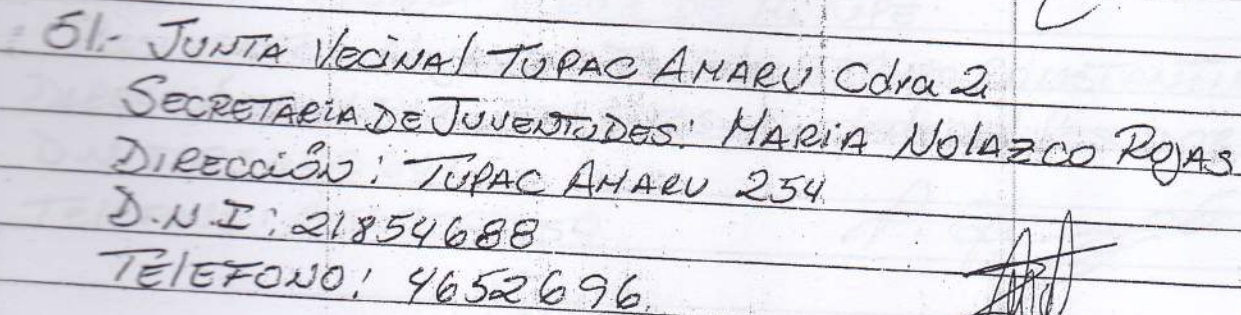 51.- JUNTA VECINAL TUPAC AMARU Cdra 2
SECRETARIA DE JUVENTUDES: MARIA NOLAZCO ROJAS
DIRECCIÓN: TUPAC AMARU 254
D.N.I: 21854688
TELEFONO: 4652696.